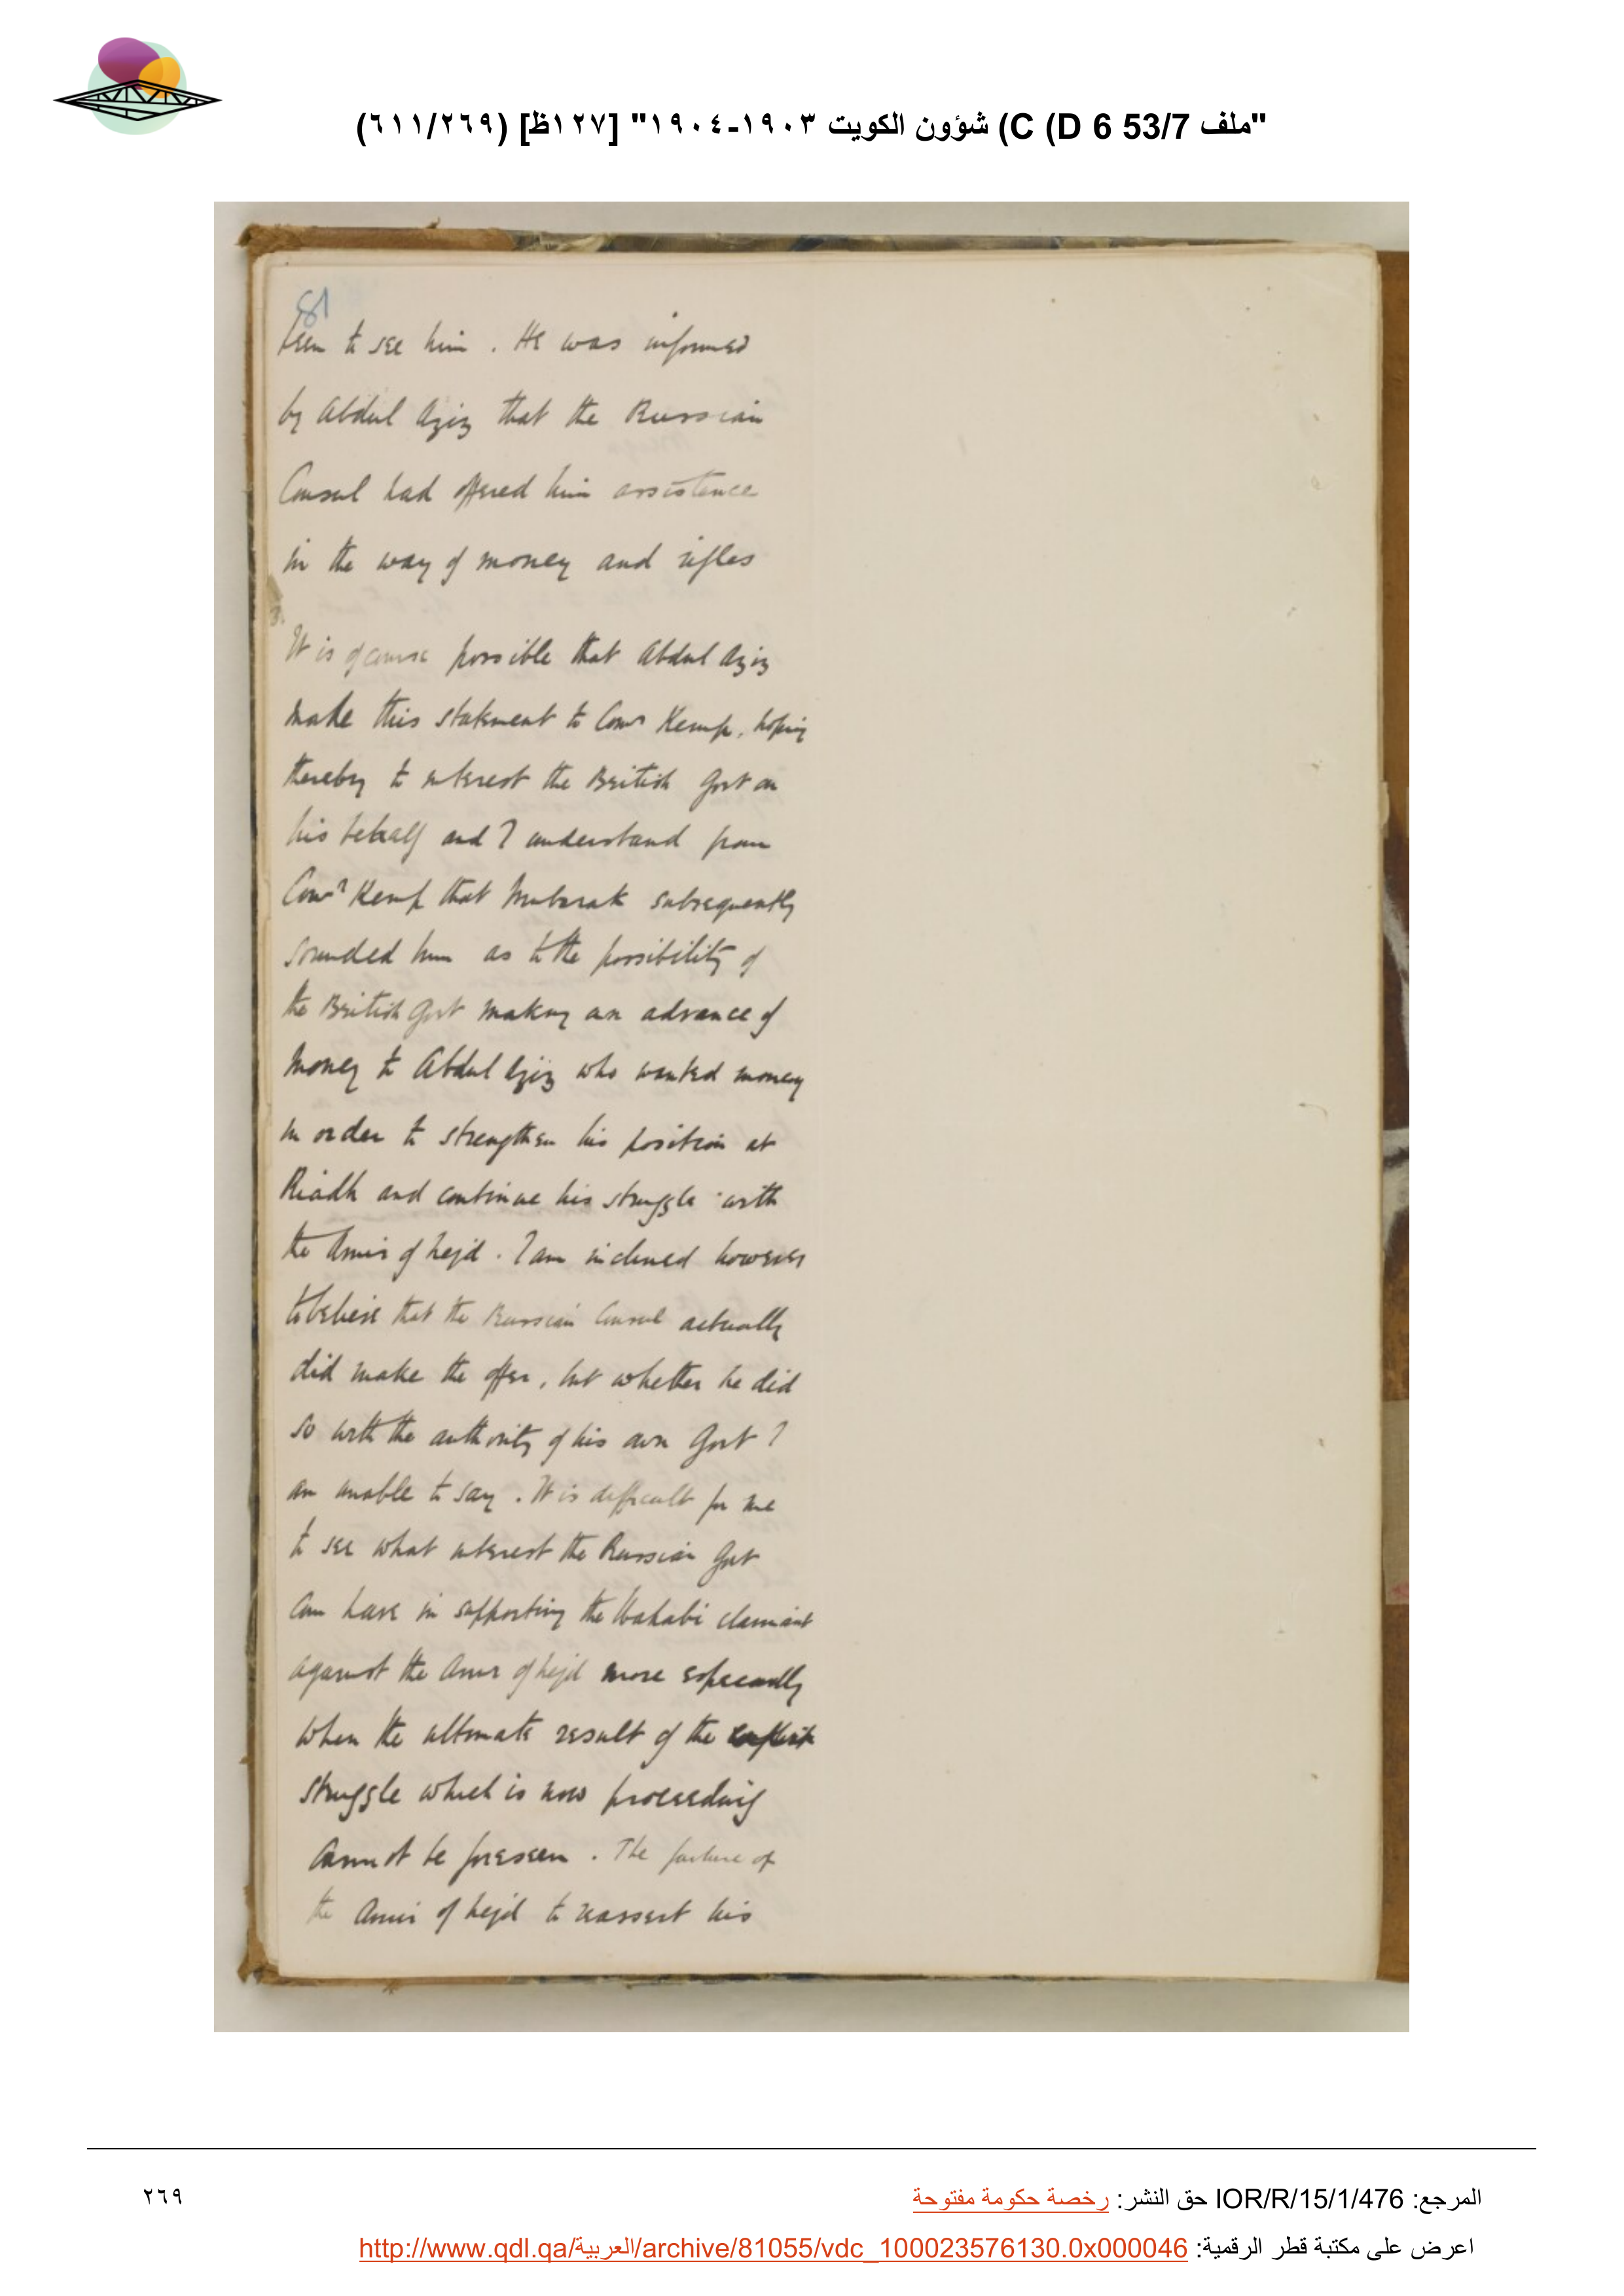 "ملف 53/7 D 6) C) شؤون الكويت ١٩٠٣-١٩٠٤" [١٢٧ظ] (٦١١/٢٦٩)
81
been to see him. He was informed
by Abdul Aziz that the Russian
Consul had offered him assistance
in the way of money and rifles
3.
It is of course possible that Abdul Aziz
made this statement to Comr Kemp, hoping
thereby to interest the British Govt on
his behalf and I understand from
Comr Kemp that Mubarak subsequently
sounded him as to the possibility of
the British Govt making an advance of
money to Abdul Aziz who wanted money
in order to strengthen his position at
Riadh and continue his struggle with
the Amir of Nejd. I am inclined however
to believe that the Russian Consul actually
did make the offer, but whether he did
so with the authority of his own Govt I
am unable to say. It is difficult for me
to see what interest the Russian Govt
can have in supporting the Wahabi claimant
against the Amir of Nejd more especially
when the ultimate result of the
struggle which is now proceeding
cannot be foreseen. The failure of
the Amir of Nejd to reassert his
المرجع: IOR/R/15/1/476 حق النشر: رخصة حكومة مفتوحة
٢٦٩
اعرض على مكتبة قطر الرقمية: http://www.qdl.qa/العربية/archive/81055/vdc_100023576130.0x000046